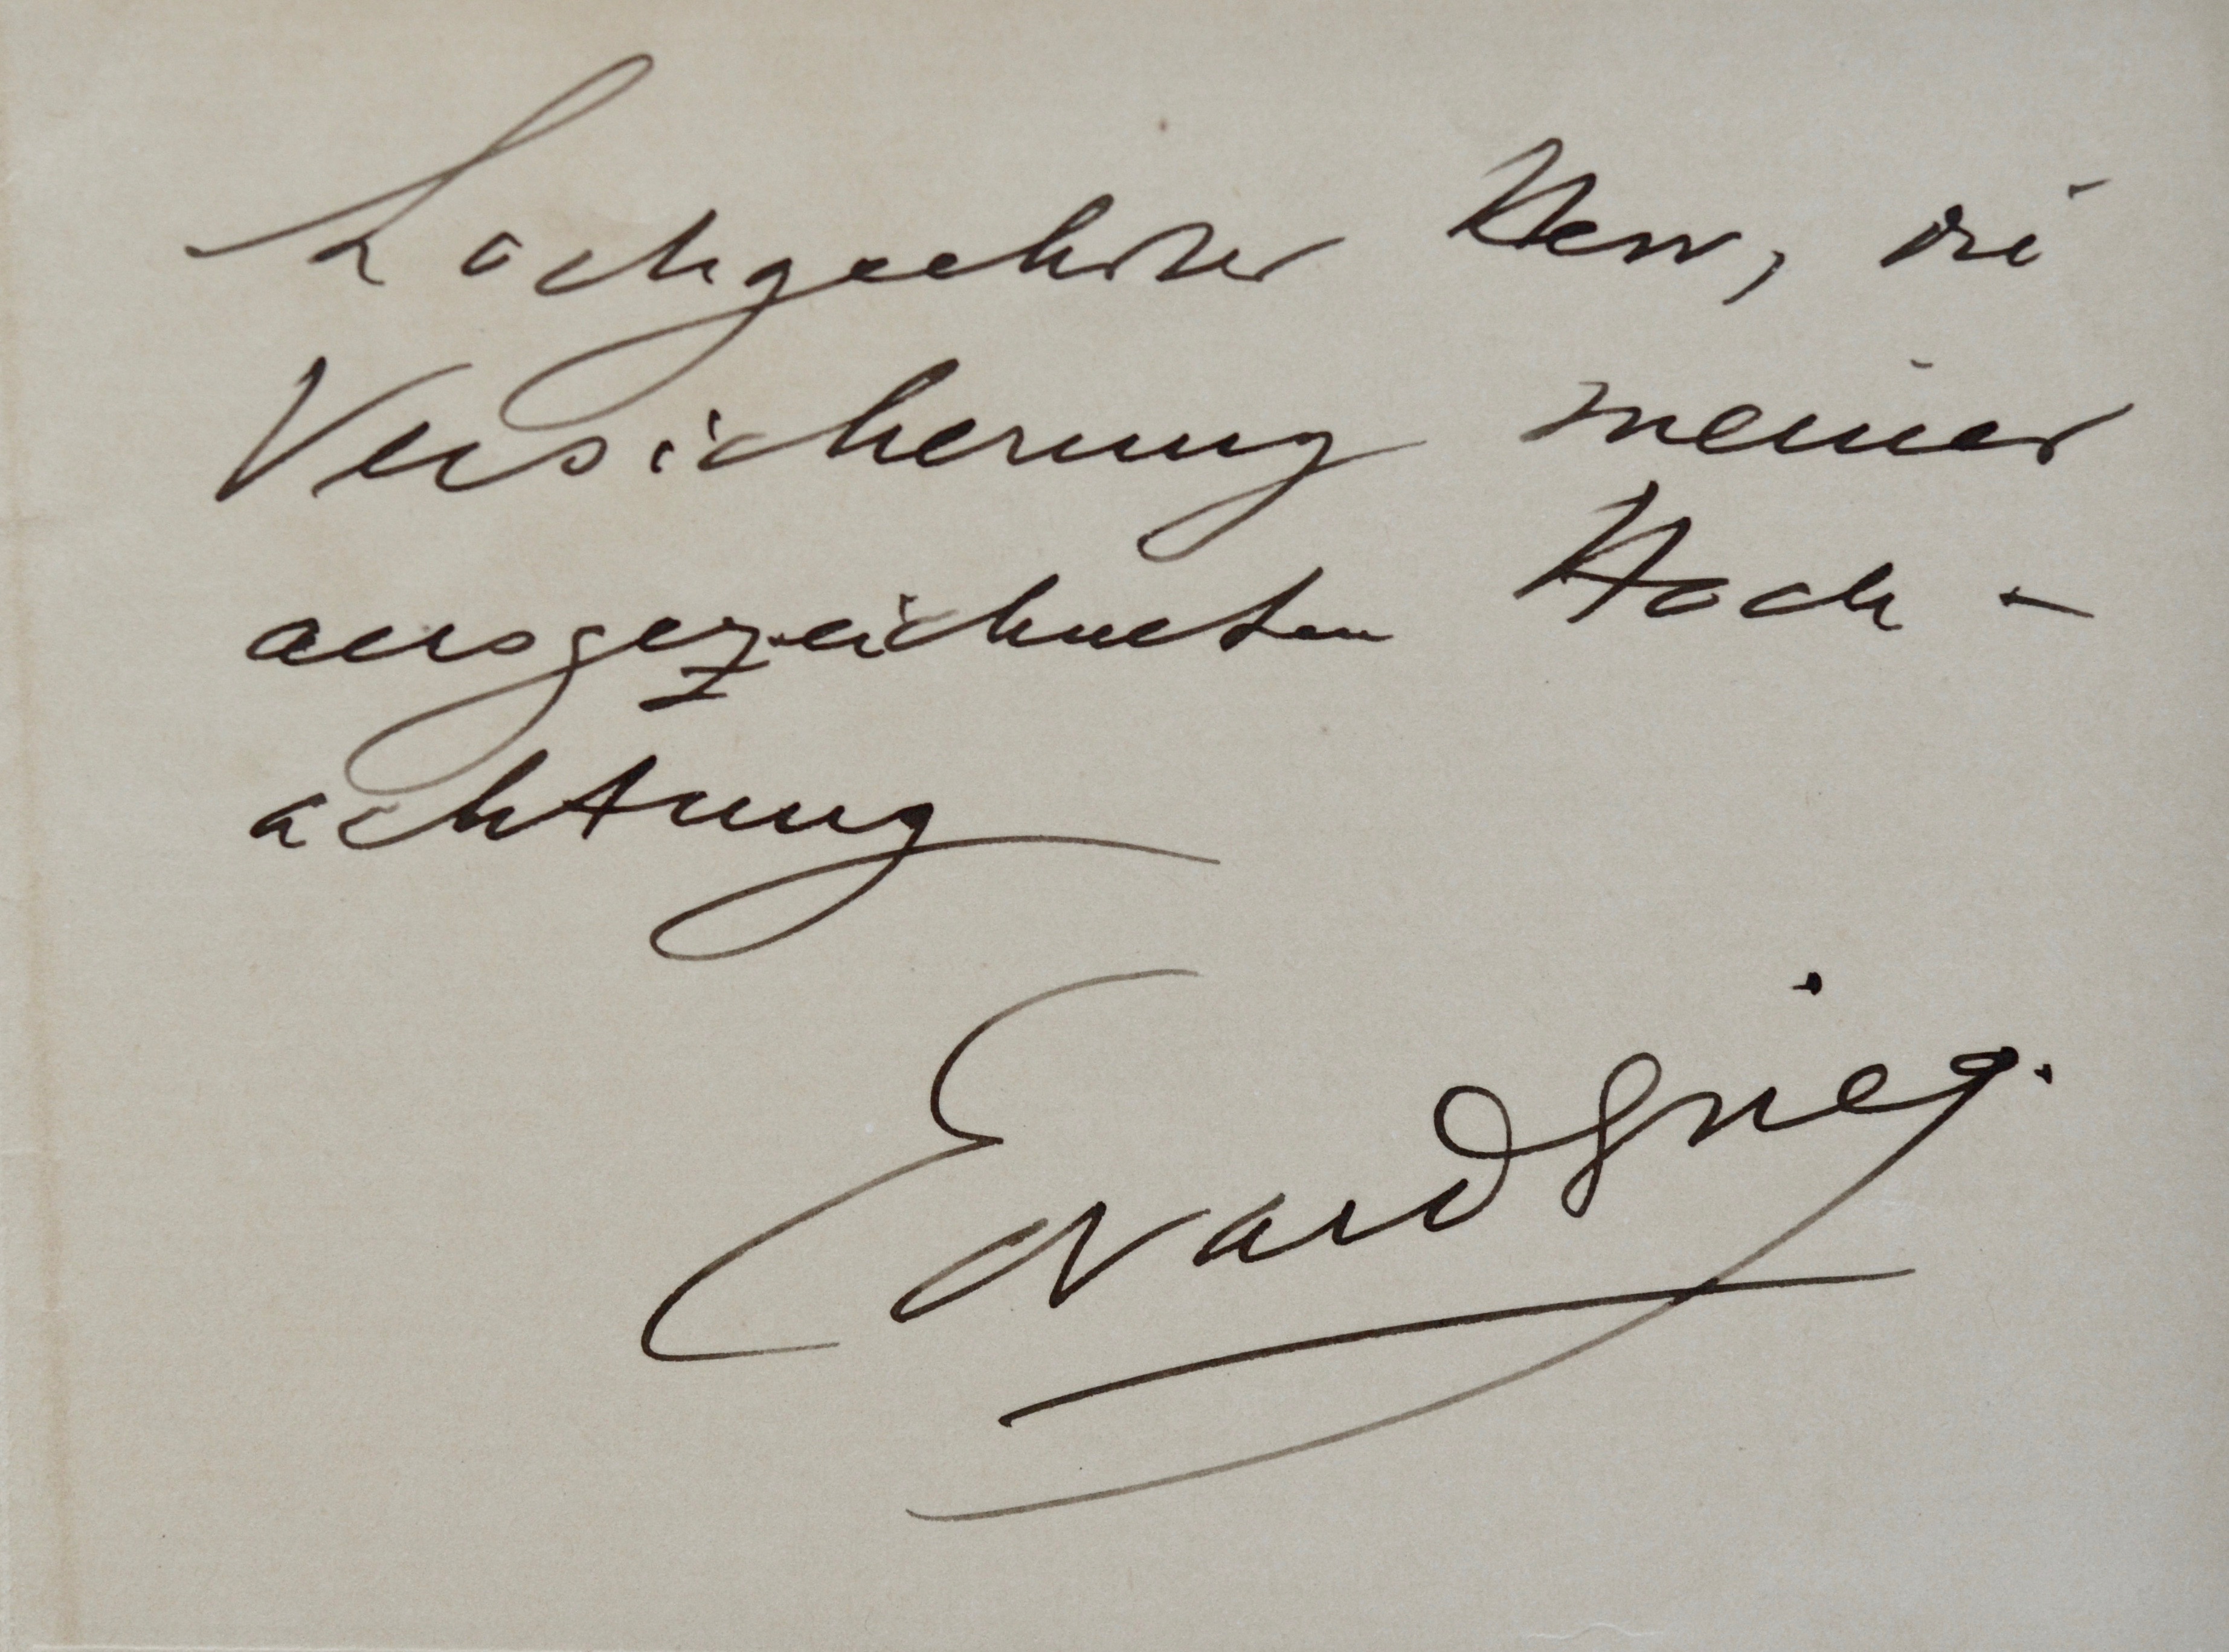 hochgeehrter Herr, die
Versicherung meiner
ausgezeichneten Hoch-
achtung
Edvard Grieg.